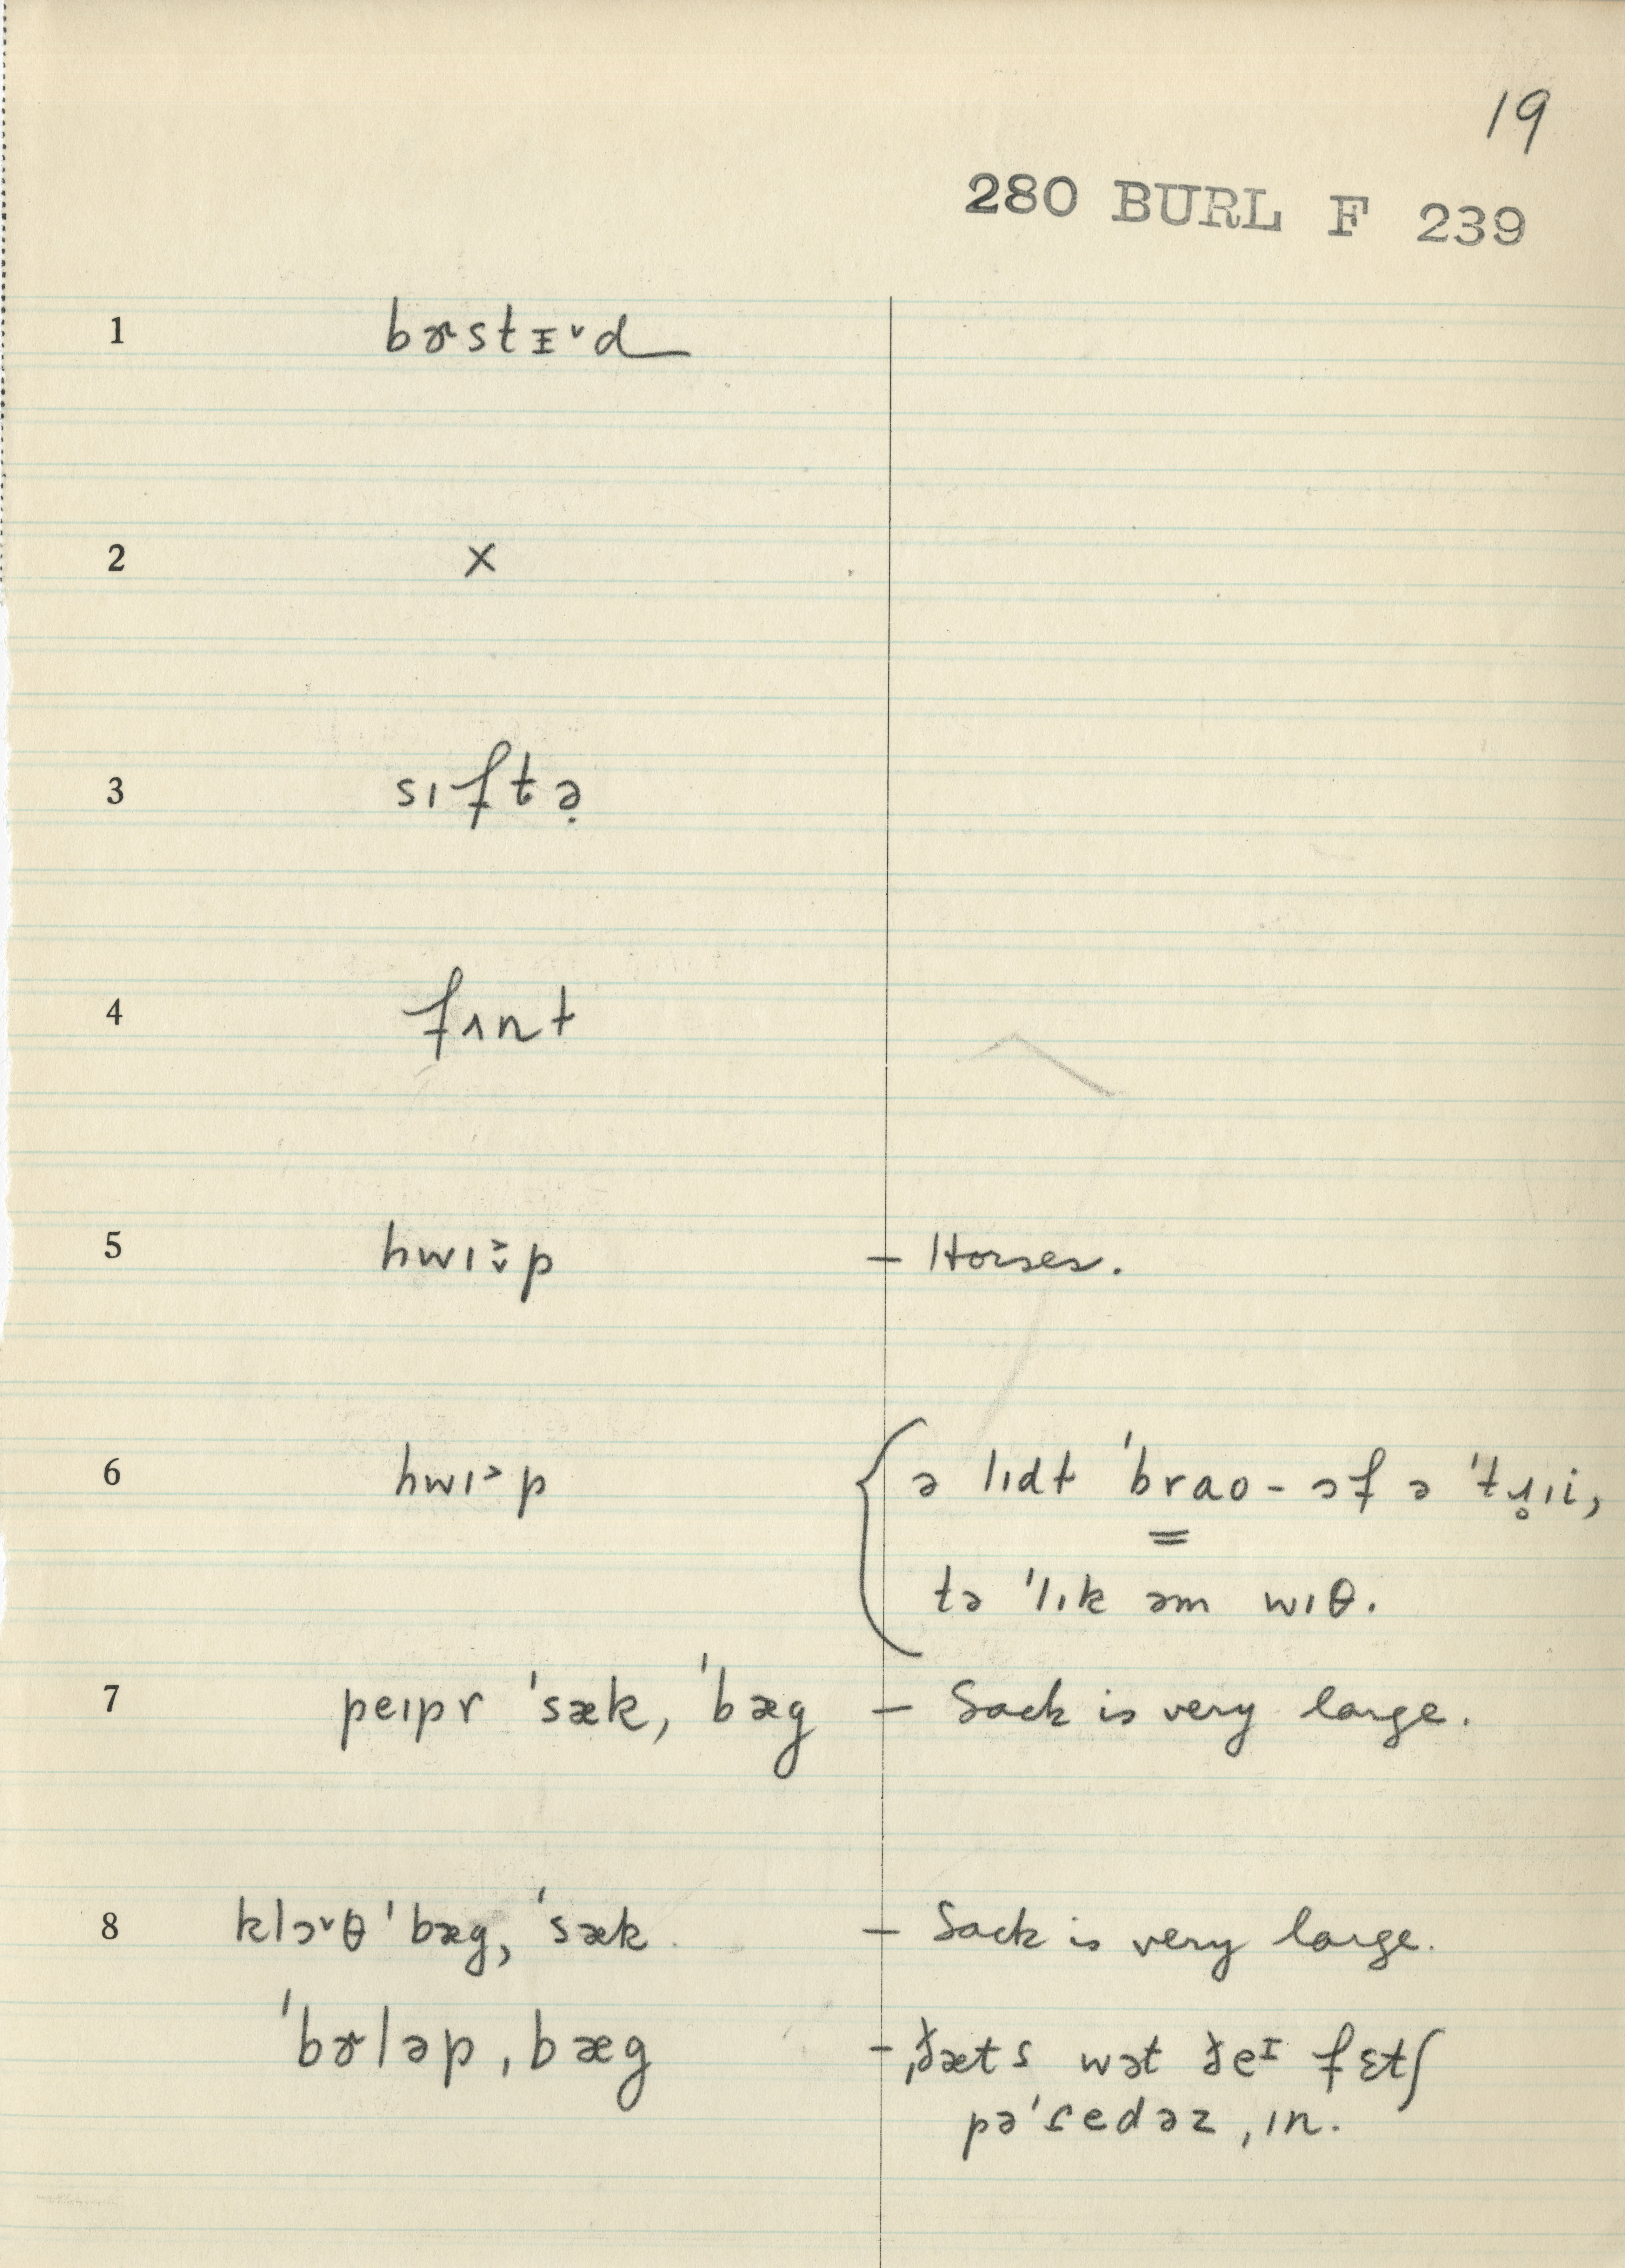 19
280 BURL F 239
1 bɚstɪ˅d
2 x
3 sıftə̣
4 fʌnt
5 hwı˃̬p – Horses.
6 hwı˃p { ə lıdt ˈbrao - ɔf ə ˈtɹ̥ıi,
tə ˈlık əm wıθ.
7 peıpr ˈsæk, ˈbæg – Sack is very large.
8 klɔ˅θ ˈbæg, ˈsæk – Sack is very large.
ˈbɚləp ˌbæg – ˌðæts wət ðeɪ fɛtʃ
pəˈɾedəz ˌın.